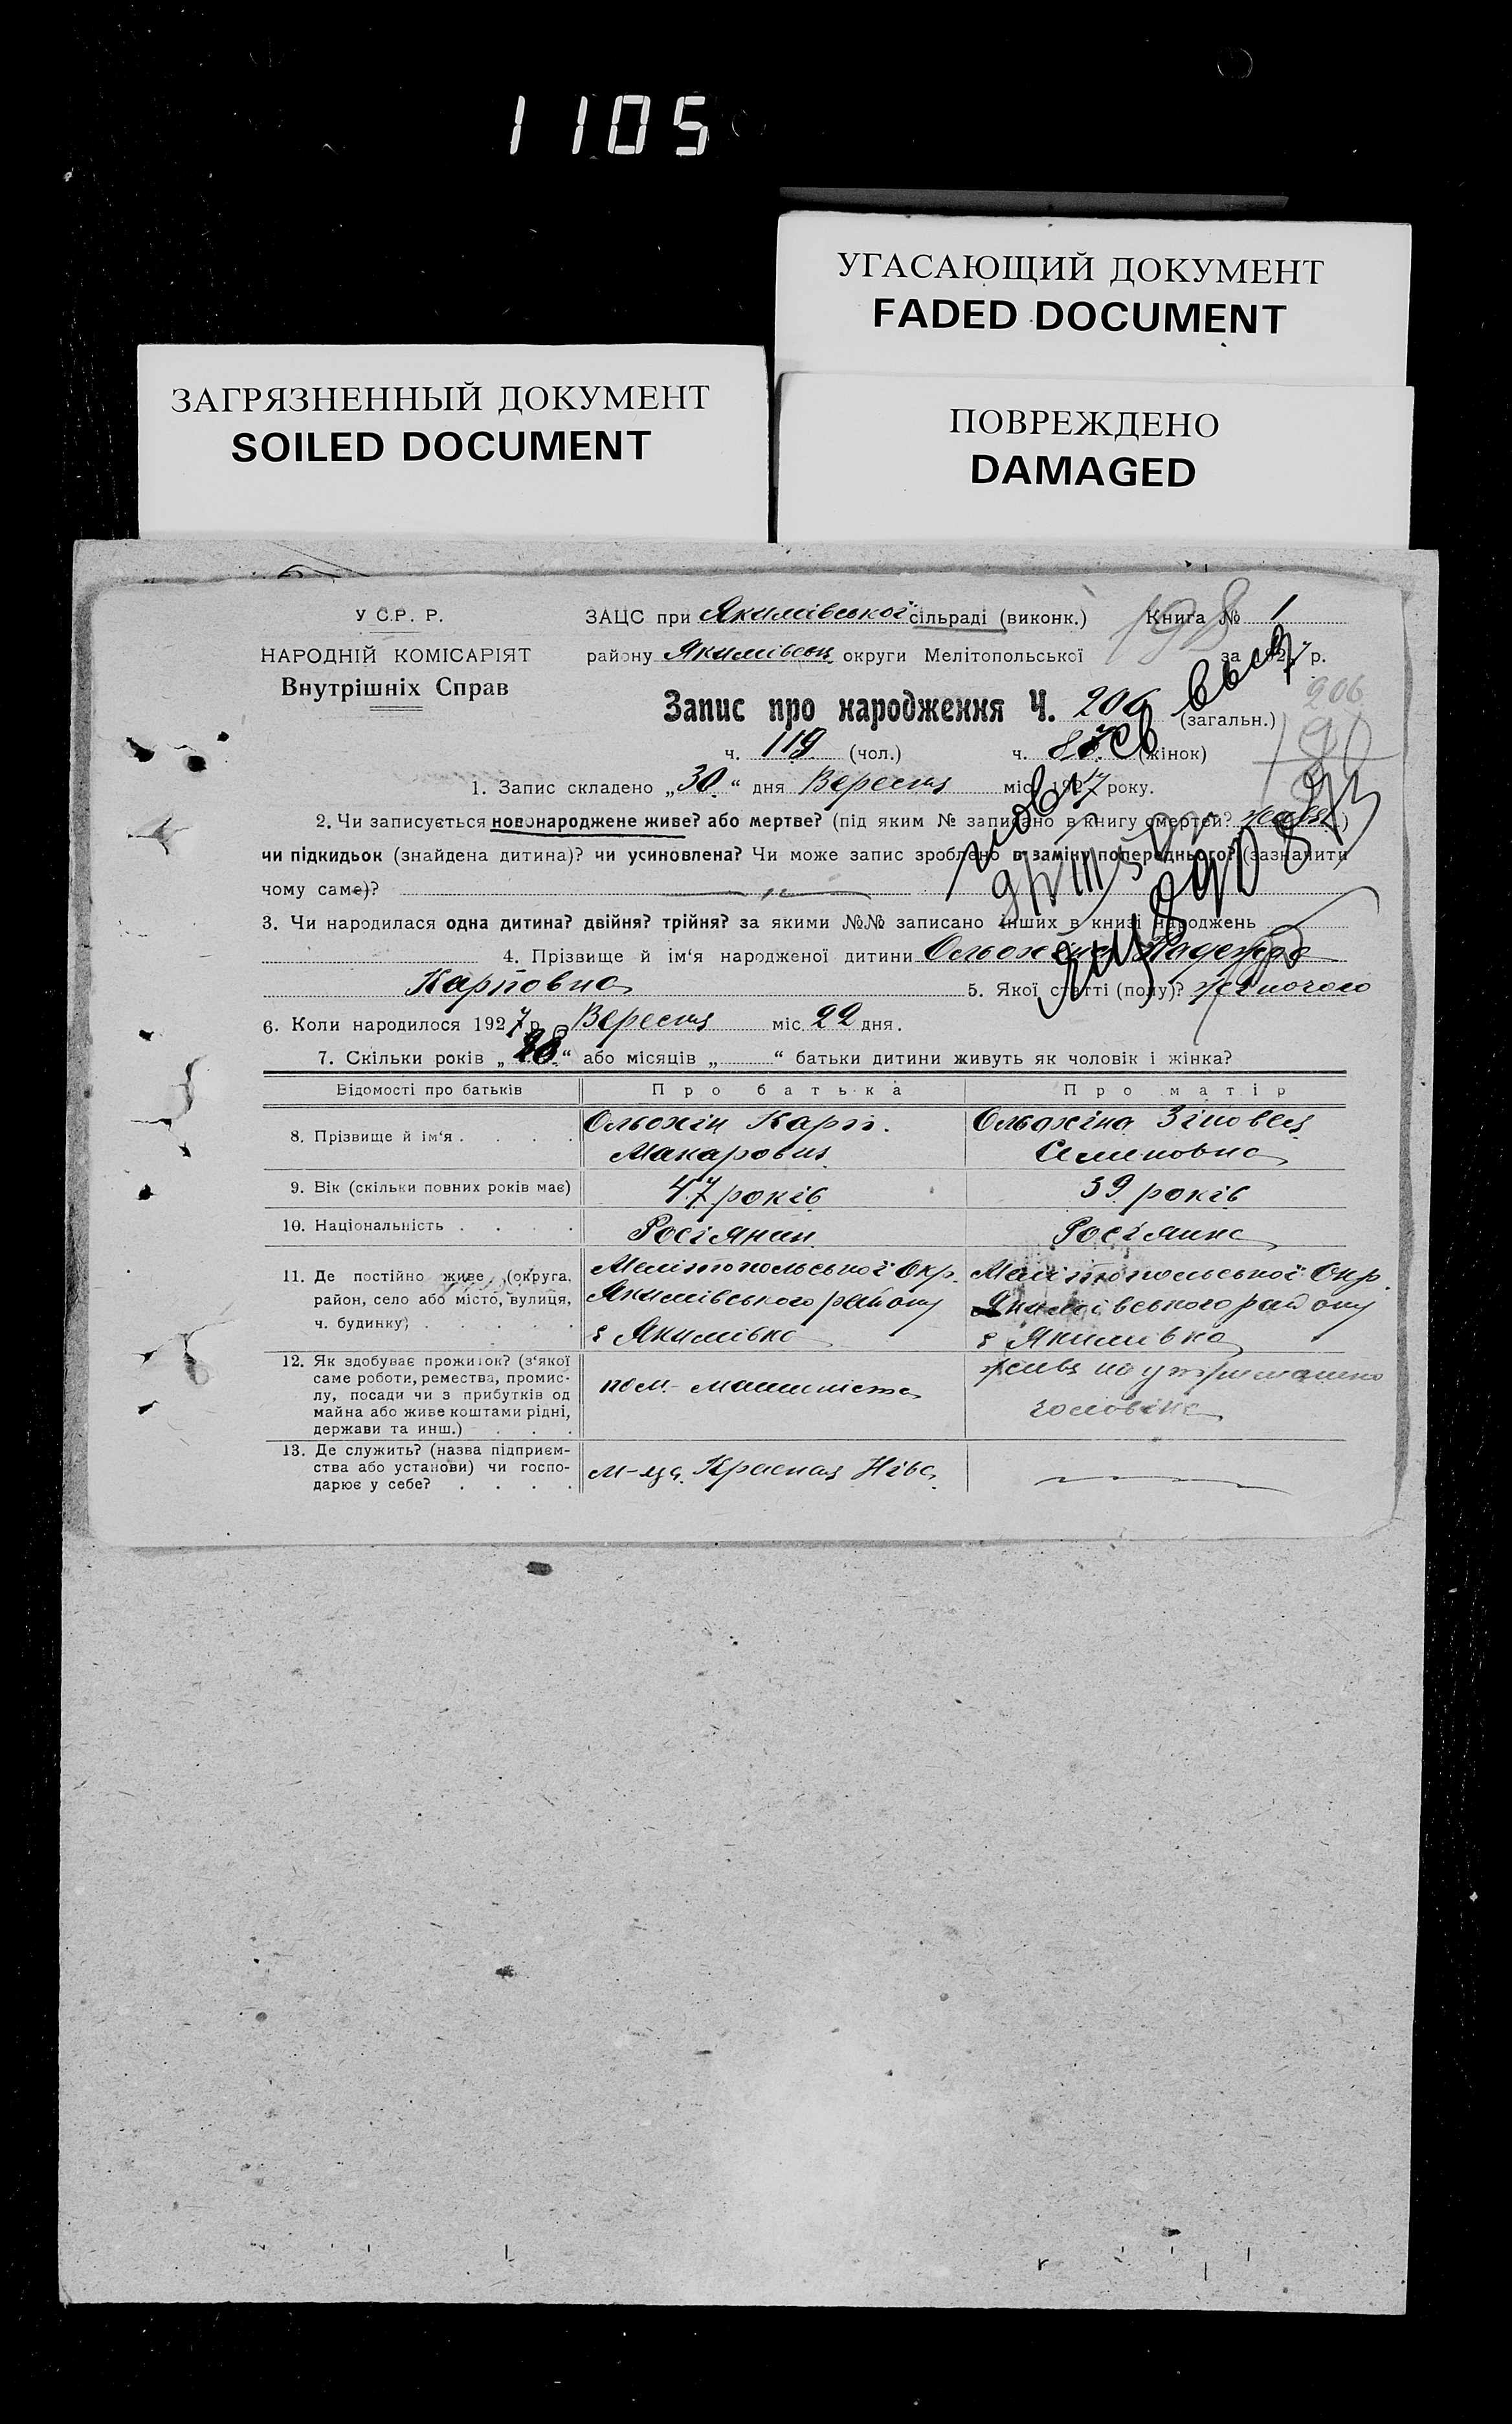 1105
УГАСАЮЩИЙ ДОКУМЕНТ
FADED DOCUMENT
ЗАГРЯЗНЕННЫЙ ДОКУМЕНТ
SOILED DOCUMENT
ПОВРЕЖДЕНО
DAMAGED
У С.Р. Р.
НАРОДНІЙ КОМІСАРІЯТ
Внутрішніх Справ
198
ЗАЦС при Якимівської сільраді (виконк.) Книга № 1
району Якимівськ. округи Мелітопольської за 1927 р.
206
Запис про народження Ч. 206 (загальн.)
ч. 119 (чол.) ч. 87 (жінок)
1. Запис складено „30“ дня Вересня міс. 1927 року.
2. Чи записується новонароджене живе? або мертве? (під яким № записано в книгу смертей? живе)
чи підкидьок (знайдена дитина)? чи усиновлена? Чи може запис зроблено в заміну попереднього? (зазначити
чому саме)?
3. Чи народилася одна дитина? двійня? трійня? за якими №№ записано інших в книзі народжень
4. Прізвище й ім‘я народженої дитини Ольохіна Надежда
Карповна 5. Якої статті (полу)? жіночого
6. Коли народилося 1927 р. Вересня міс. 22 дня.
7. Скільки років „28“ або місяців „ “ батьки дитини живуть як чоловік і жінка?
Відомості про батьків Про батька Про матір
8. Прізвище й ім‘я . . . . Ольохін Карп. Макарович Ольохіна Зіновея Семеновна
9. Вік (скільки повних років має) 47 років 39 років
10. Національність . . . . Росіянин Росіянка
11. Де постійно живе (округа,
район, село або місто, вулиця,
ч. будинку) . . . . .
Мелітопольської Окр.
Якимівського району
с Якимівка
Мелітопольської Окр.
Якимівського району
с Якимівка
12. Як здобуває прожиток? (з‘якої
саме роботи, ремества, промис-
лу, посади чи з прибутків од
майна або живе коштами рідні,
держави та инш.) . . .
пом. машиніста
живе на утриманню
чоловіка
13. Де служить? (назва підприєм-
ства або установи) чи госпо-
дарює у себе? . . . .
Красная Ніва